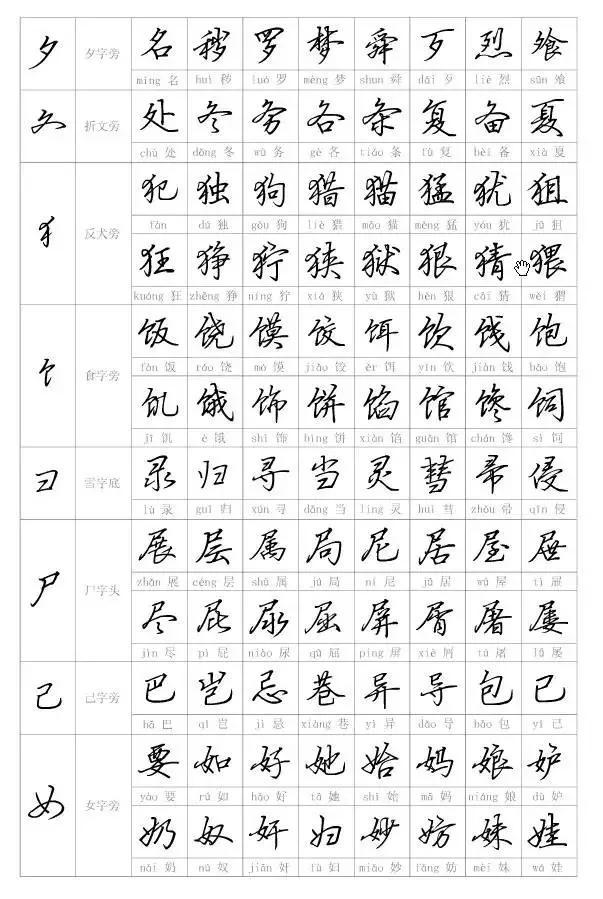 夕 夕字旁 名 秽 罗 梦 舜 歹 烈 飧
míng 名 huì 秽 luó 罗 mèng 梦 shùn 舜 dǎi 歹 liè 烈 sūn 飧
夂 折文旁 处 冬 务 各 条 复 备 夏
chù 处 dōng 冬 wù 务 gè 各 tiáo 条 fù 复 bèi 备 xià 夏
犭 反犬旁 犯 独 狗 猎 猫 猛 犹 狙
fàn dú 独 gǒu 狗 liè 猎 māo 猫 měng 猛 yóu 犹 jū 狙
狂 狰 狞 狭 狱 狠 猜 猥
kuáng 狂 zhēng 狰 níng 狞 xiá 狭 yù 狱 hěn 狠 cāi 猜 wěi 猥
饣 食字旁 饭 饶 馍 饺 饵 饮 饯 饱
fàn 饭 ráo 饶 mó 馍 jiǎo 饺 ěr 饵 yǐn 饮 jiàn 饯 bǎo 饱
饥 饿 饰 饼 馅 馆 馋 饲
jī 饥 è 饿 shì 饰 bǐng 饼 xiàn 馅 guǎn 馆 chán 馋 sì 饲
彐 雪字底 录 归 寻 当 灵 彗 帚 侵
lù 录 guī 归 xún 寻 dāng 当 líng 灵 huì 彗 zhǒu 帚 qīn 侵
尸 尸字头 展 层 属 局 尼 居 屋 屉
zhǎn 展 céng 层 shǔ 属 jú 局 ní 尼 jū 居 wū 屋 tì 屉
尽 屁 尿 屈 屏 屑 屠 屡
jìn 尽 pì 屁 niào 尿 qū 屈 píng 屏 xiè 屑 tú 屠 lǚ 屡
己 己字旁 巴 岂 忌 巷 异 导 包 已
bā 巴 qǐ 岂 jì 忌 xiàng 巷 yì 异 dǎo 导 bāo 包 yǐ 已
女 女字旁 要 如 好 她 始 妈 娘 妒
yào 要 rú 如 hǎo 好 tā 她 shǐ 始 mā 妈 niáng 娘 dù 妒
奶 奴 奸 妇 妙 妨 妹 娃
nǎi 奶 nú 奴 jiān 奸 fù 妇 miào 妙 fáng 妨 mèi 妹 wá 娃